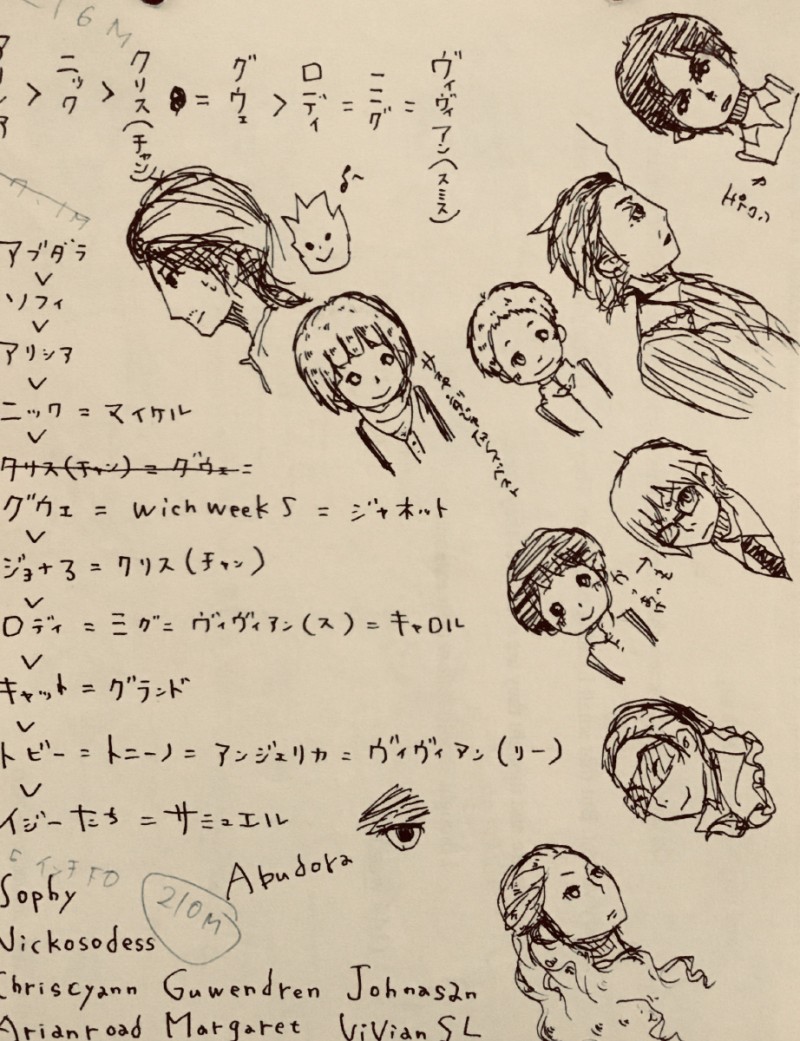 16M
> ニック > クリス(チャン) = グウェ > ロディ = ミグ = ヴィヴィアン(スミス)
アブダラ
∨
ソフィ
∨
アリシア
∨
ニック = マイケル
∨
クリス(チャン) = グウェ =
グウェ = wichweek5 = ジャネット
∨
ジョナサ = クリス(チャン)
∨
ロディ = ミグ = ヴィヴィアン(ス) = キャロル
∨
キャット = グランド
∨
トビー = トニーノ = アンジェリカ = ヴィヴィアン(リー)
∨
イジーたち = サミュエル
Abudora
Sophy
210M
Nickosodess
Chriscyann Guwendren Johnasan
Arianroad Margaret ViVian SL